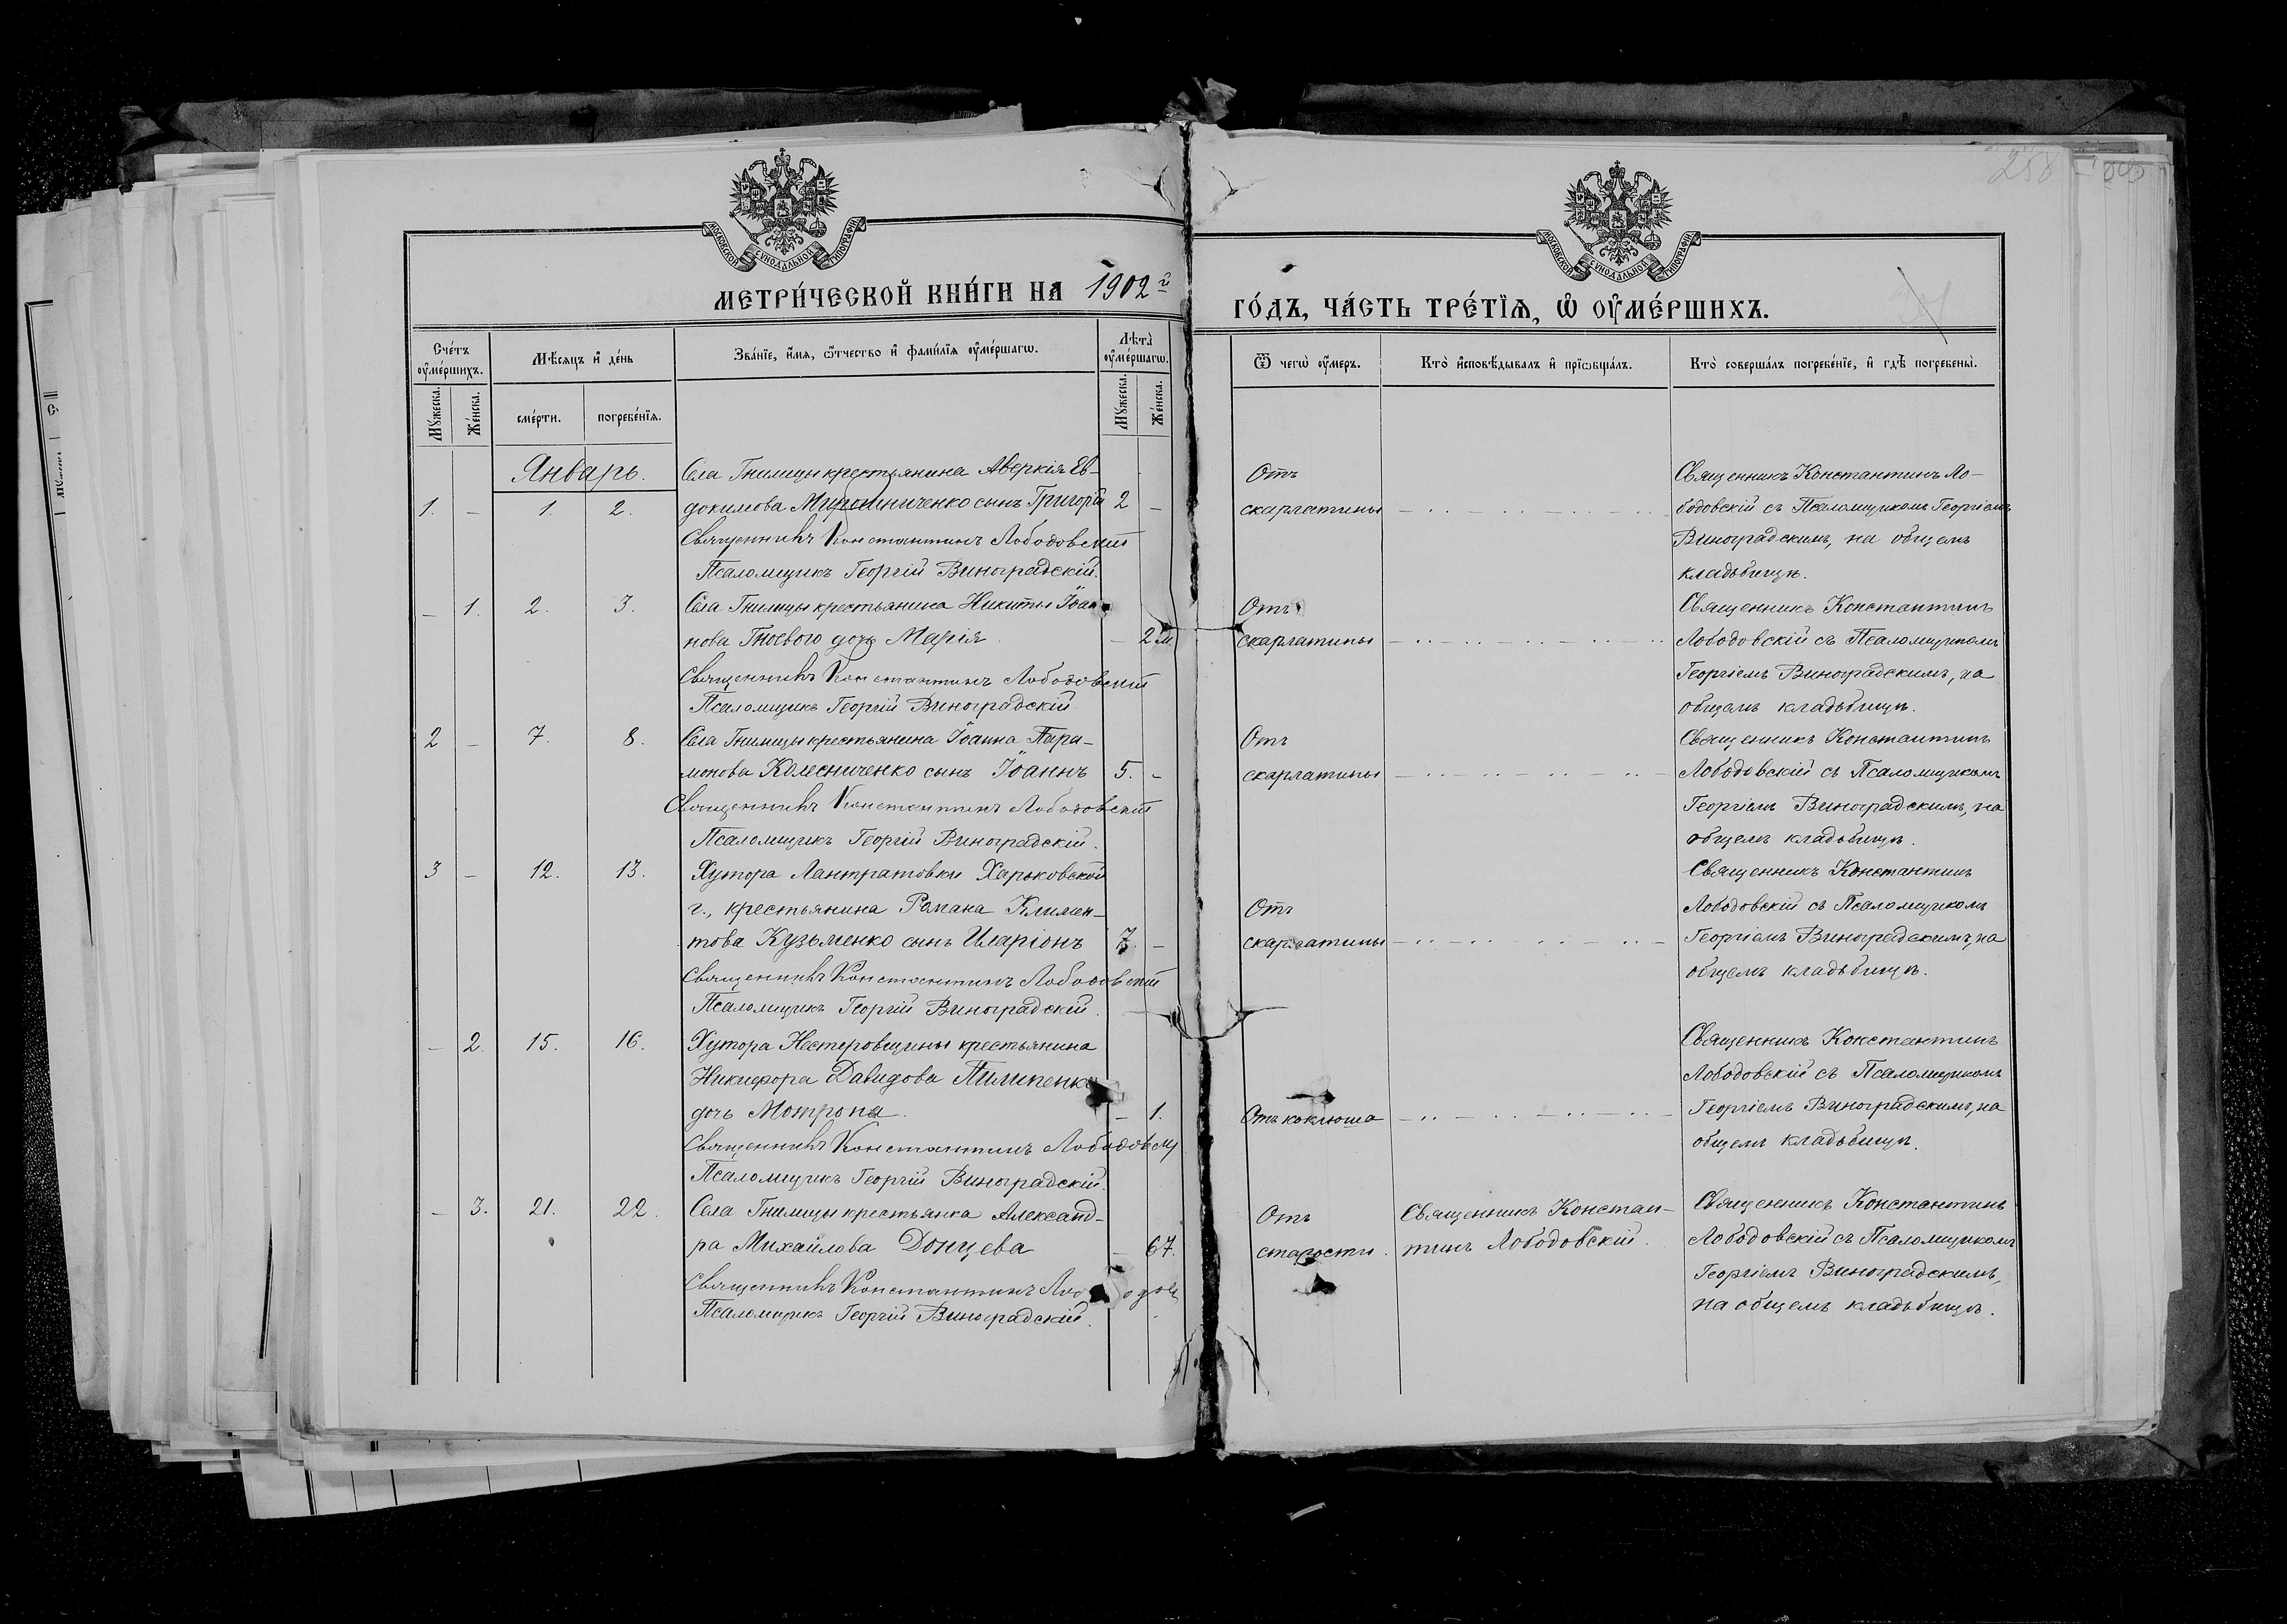 258
МОСКОВСКОЙ СѴНОДАЛЬНОЙ ТИПОГРАФІИ
МОСКОВСКОЙ СѴНОДАЛЬНОЙ ТИПОГРАФІИ
МЕТРИ́ЧЕСКОЙ КНИ́ГИ НА 1902 г.
ГО́ДЪ, ЧА́СТЬ ТРЕ́ТЇѦ, Ѡ҆ ОУ҆МЕ́РШИХЪ.
Сче́тъ оу҆ме́ршихъ.
Мѣсяцъ и҆ де́нь
Зва́нїе, и҆́мя, ѻ҆́тчество и҆ фами́лїя оу҆ме́ршагѡ.
Лѣта̀ оу҆ме́ршагѡ.
Ѿ чегѡ̀ оу҆́меръ.
Кто̀ и҆сповѣ́дывалъ и҆ прїѡбща́лъ.
Кто̀ соверша́лъ погребе́нїе, и҆ гдѣ̀ погребены̀.
Мꙋжеска.
Же́нска.
сме́рти.
погребе́нїя.
Мꙋжеска.
Же́нска.
Январь.
Села Гнилицы крестьянина Аверкія Ев-
1. - 1. 2. докимова Мирошниченко сынъ Григорій 2 -
Священникъ Константинъ Лободовскій
Псаломщикъ Георгій Виноградскій.
Отъ
скарлатины
Священникъ Константинъ Ло-
бодовскій съ Псаломщикомъ Георгіемъ
Виноградскимъ, на общемъ
кладбищѣ.
- 1. 2. 3. Села Гнилицы крестьянина Никиты Іоан
нова Гноевого дочь Марія. - 2 м.
Священникъ Константинъ Лободовскій
Псаломщикъ Георгій Виноградскій
Отъ
скарлатины
Священникъ Константинъ
Лободовскій съ Псаломщикомъ
Георгіемъ Виноградскимъ, на
общемъ кладьбищѣ.
2 - 7. 8. Села Гнилицы крестьянина Іоанна Пара-
монова Колесниченко сынъ Іоаннъ 5. -
Священникъ Константинъ Лободовскій
Псаломщикъ Георгій Виноградскій.
Отъ
скарлатины
Священникъ Константинъ
Лободовскій съ Псаломщикомъ
Георгіемъ Виноградскимъ, на
общемъ кладьбищѣ.
3 - 12. 13. Хутора Лантратовки Харьковской
г., крестьянина Романа Климен-
това Кузьменко сынъ Иларіонъ 7. -
Священникъ Константинъ Лободовскій
Псаломщикъ Георгій Виноградскій.
Отъ
скарлатины
Священникъ Константинъ
Лободовскій съ Псаломщикомъ
Георгіемъ Виноградскимъ, на
общемъ кладьбищѣ.
- 2. 15. 16. Хутора Нестеровщины крестьянина
Никифора Давидова Пилипенко
дочь Мотрона. - 1.
Священникъ Константинъ Лободовск
Псаломщикъ Георгій Виноградскій.
Отъ коклюша
Священникъ Константинъ
Лободовскій съ Псаломщикомъ
Георгіемъ Виноградскимъ, на
общемъ кладьбищѣ.
- 3. 21. 22. Села Гнилицы крестьянка Александ-
ра Михайлова Донцева - 67.
Священникъ Константинъ Лободов
Псаломщикъ Георгій Виноградскій.
Отъ
старости.
Священникъ Констан-
тинъ Лободовскій.
Священникъ Константинъ
Лободовскій съ Псаломщикомъ
Георгіемъ Виноградскимъ,
на общемъ кладьбищѣ.